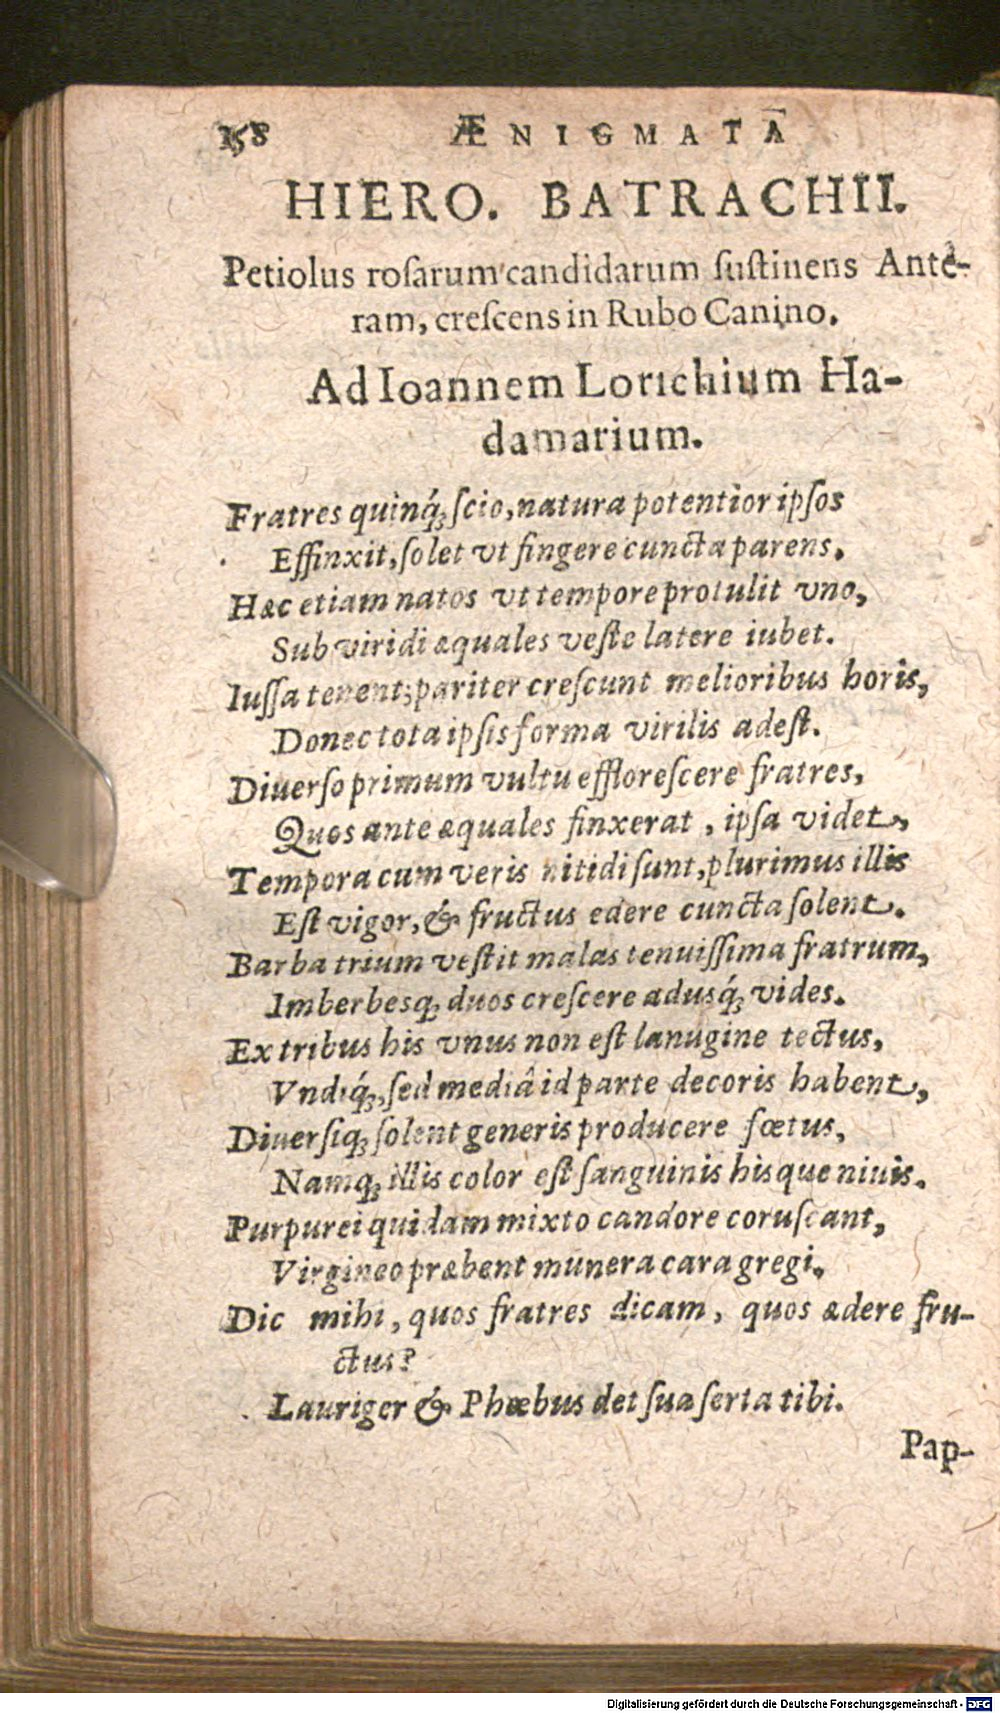 158 ÆNIGMATA
HIERO. BATRACHII.
Petiolus roſarum candidarum ſuſtinens Ante-
ram, creſcens in Rubo Canino.
Ad Ioannem Lorichium Ha-
damarium.
Fratres quinq́ꝫ ſcio, natura potentior ipſos
Effinxit, ſolet vt fingere cuncta parens.
Hæc etiam natos vt tempore protulit vno,
Sub viridi æquales veſte latere iubet.
Iuſſa tenent; pariter creſcunt melioribus horis,
Donec tota ipſis forma virilis adeſt.
Diuerſo primum vultu effloreſcere fratres,
Quos ante æquales finxerat, ipſa videt,
Tempora cum veris nitidi ſunt, plurimus illis
Eſt vigor, & fructus edere cuncta ſolent.
Barba trium veſtit malas tenuiſſima fratrum,
Imberbesqꝫ duos creſcere adusq́ꝫ vides.
Ex tribus his vnus non eſt lanugine tectus,
Vndiq́ꝫ, ſed mediâ id parte decoris habent,
Diuerſiqꝫ ſolent generis producere fœtus,
Namqꝫ illis color eſt ſanguinis hisque niuis.
Purpurei quidam mixto candore coruſcant,
Virgineo præbent munera cara gregi.
Dic mihi, quos fratres dicam, quos ædere fru-
ctus?
Lauriger & Phœbus det ſua ſerta tibi.
Pap-
Digitalisierung gefördert durch die Deutsche Forschungsgemeinschaft - DFG